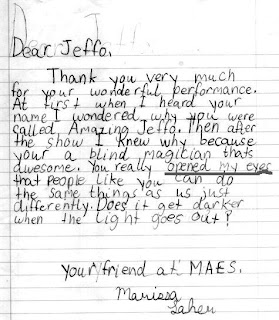 Dear Jeffo,
Thank you very much
for your wonderful performance.
At first when I heard your
name I wondered why you were
called Amazing Jeffo. Then after
the show I knew why because
your a blind magician thats
awesome. You really opened my eyes
that people like you can do
the same things as us just
differently. Does it get darker
when the light goes out?
your friend at MAES.
Marissa